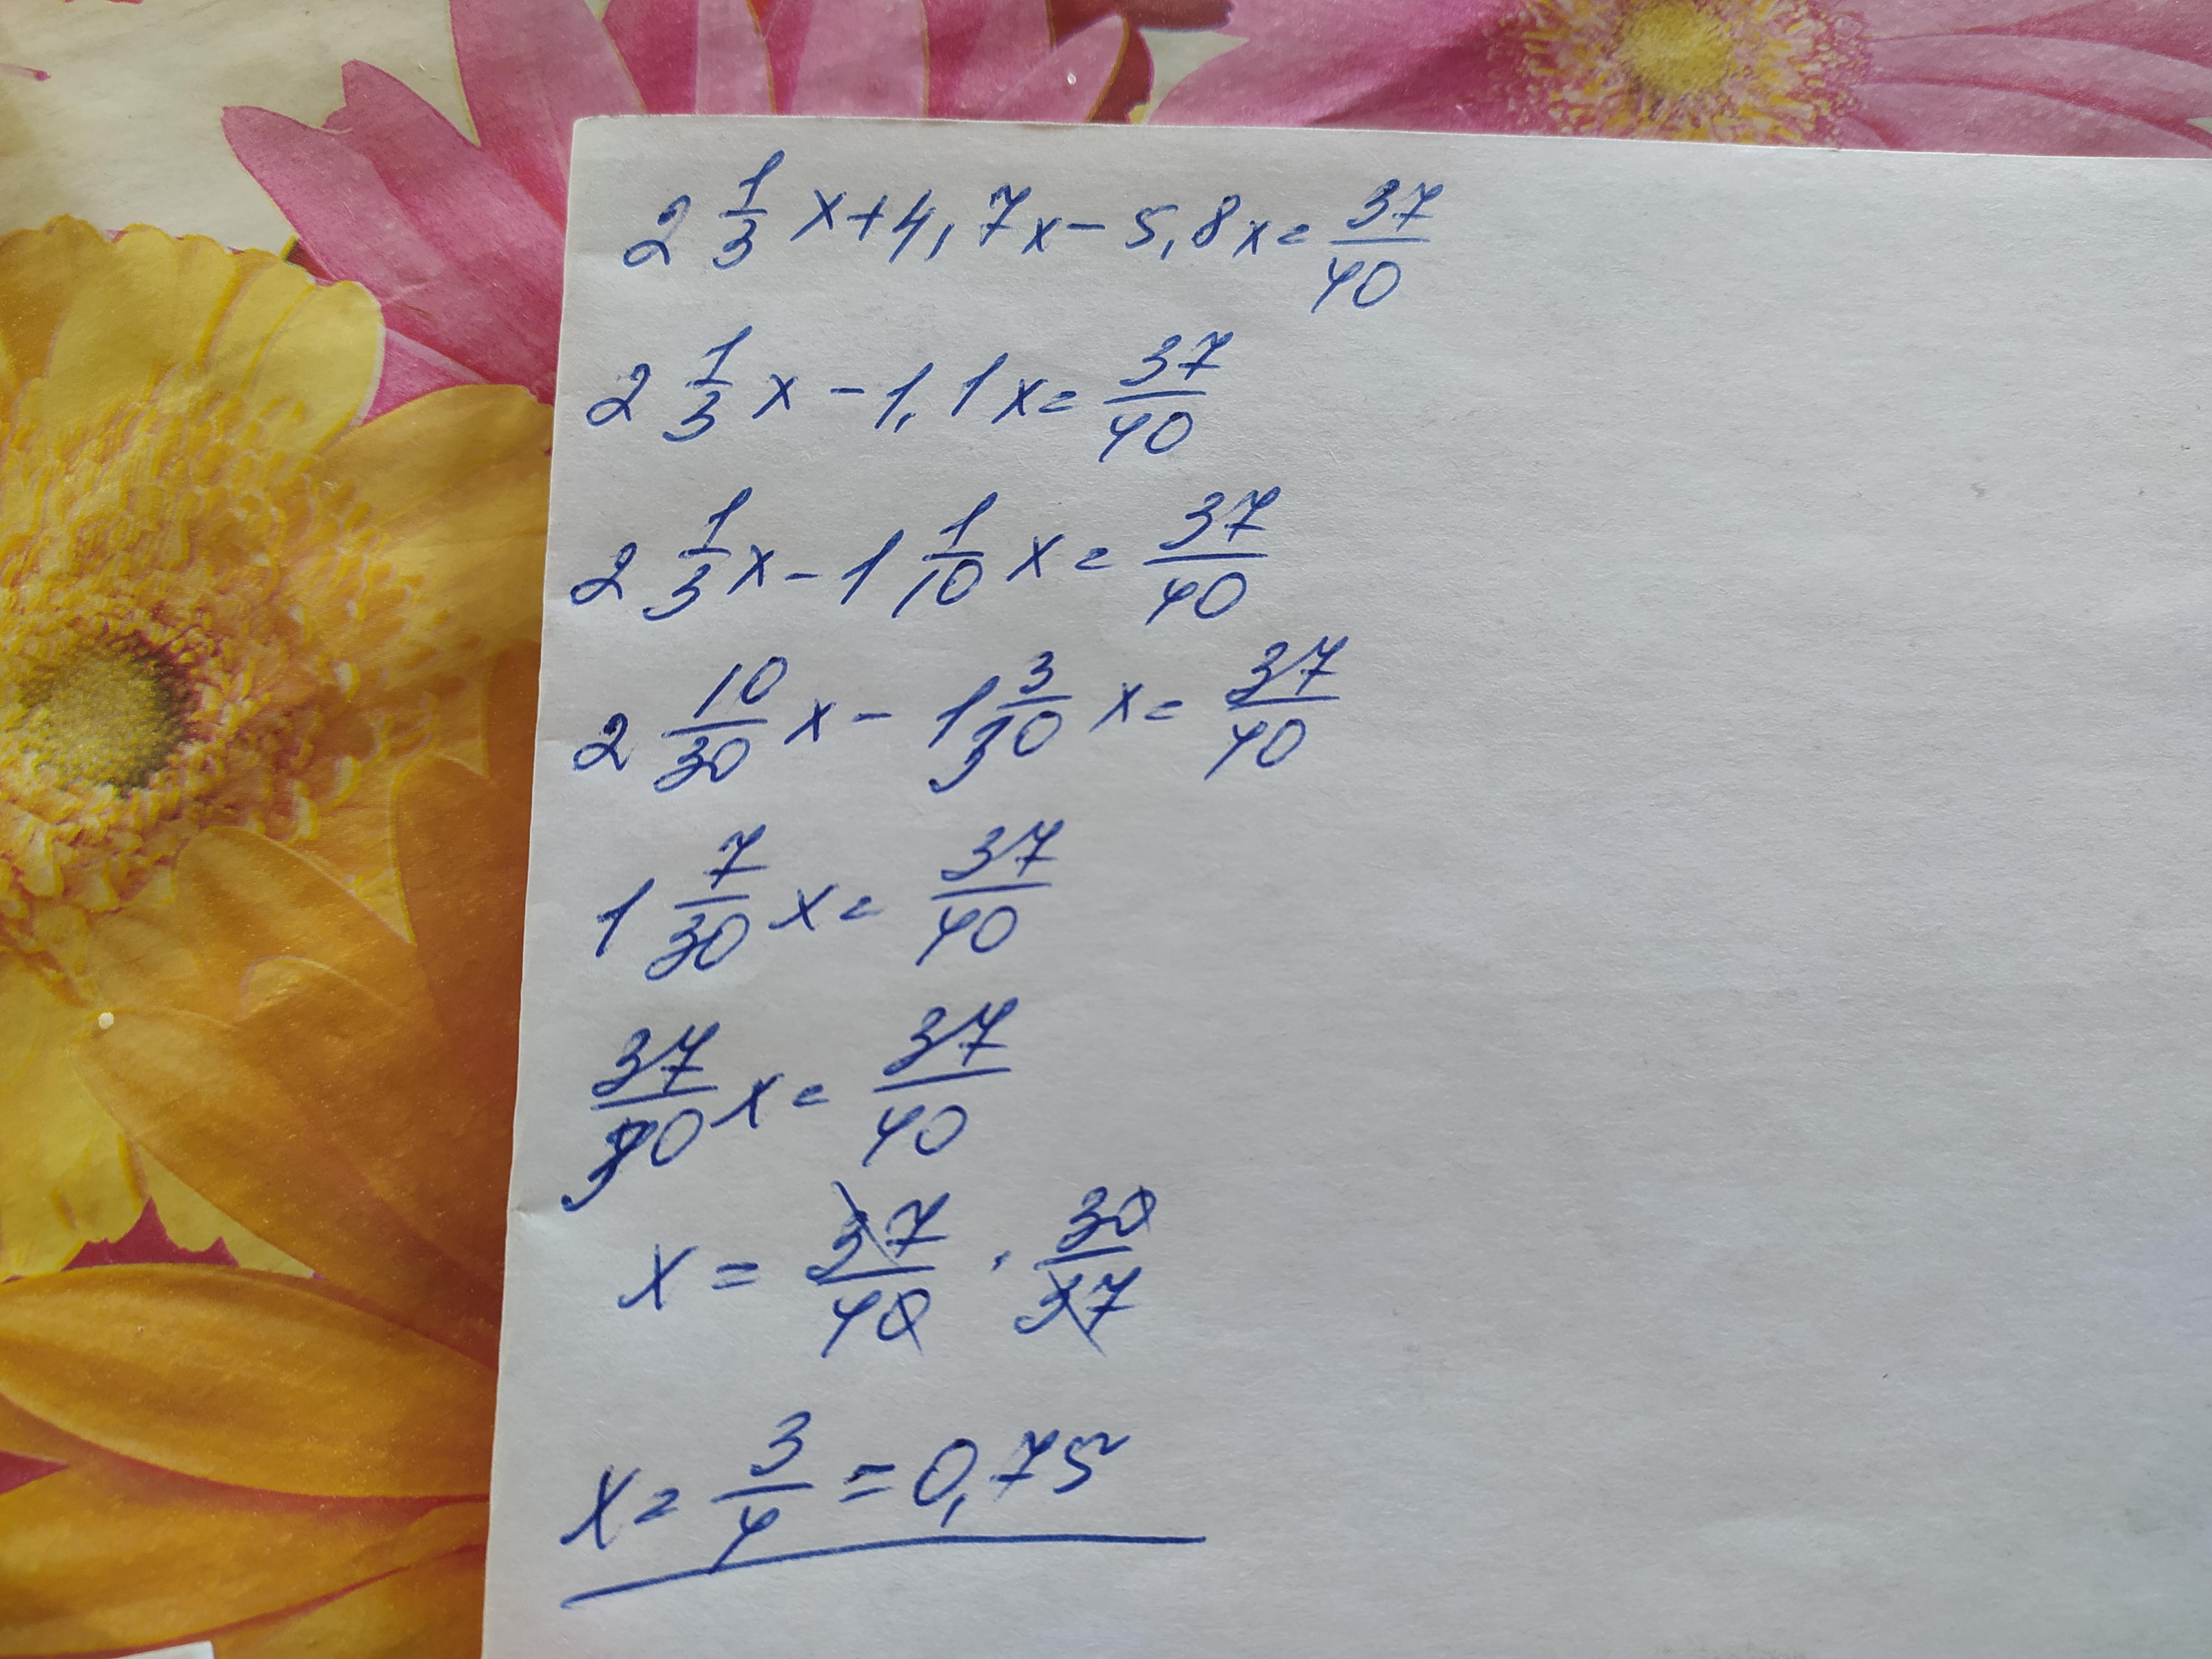 2 1/3 x + 4,7x - 5,8x = 37/40
2 1/3 x - 1,1x = 37/40
2 1/3 x - 1 1/10 x = 37/40
2 10/30 x - 1 3/30 x = 37/40
1 7/30 x = 37/40
37/30 x = 37/40
x = 37/40 · 30/37
x = 3/4 = 0,75